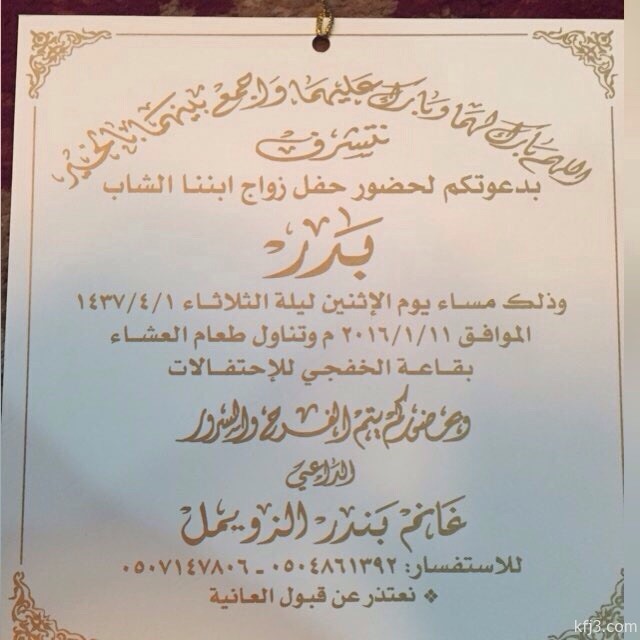 اللهم بارك لهما وبارك عليهما واجمع بينهما بالخير
نتشرف
بدعوتكم لحضور حفل زواج ابننا الشاب
بَدر
وذلك مساء يوم الإثنين ليلة الثلاثاء ١٤٣٧/٤/١
الموافق ٢٠١٦/١/١١ م وتناول طعام العشاء
بقاعة الخفجي للإحتفالات
وبحضوركم يتم الفرح والسرور
الداعي
غانم بندر الزويمل
للاستفسار: ٠٥٠٤٨٦١٣٩٢ - ٠٥٠٧١٤٧٨٠٦
❖ نعتذر عن قبول العانية
kfj3.com